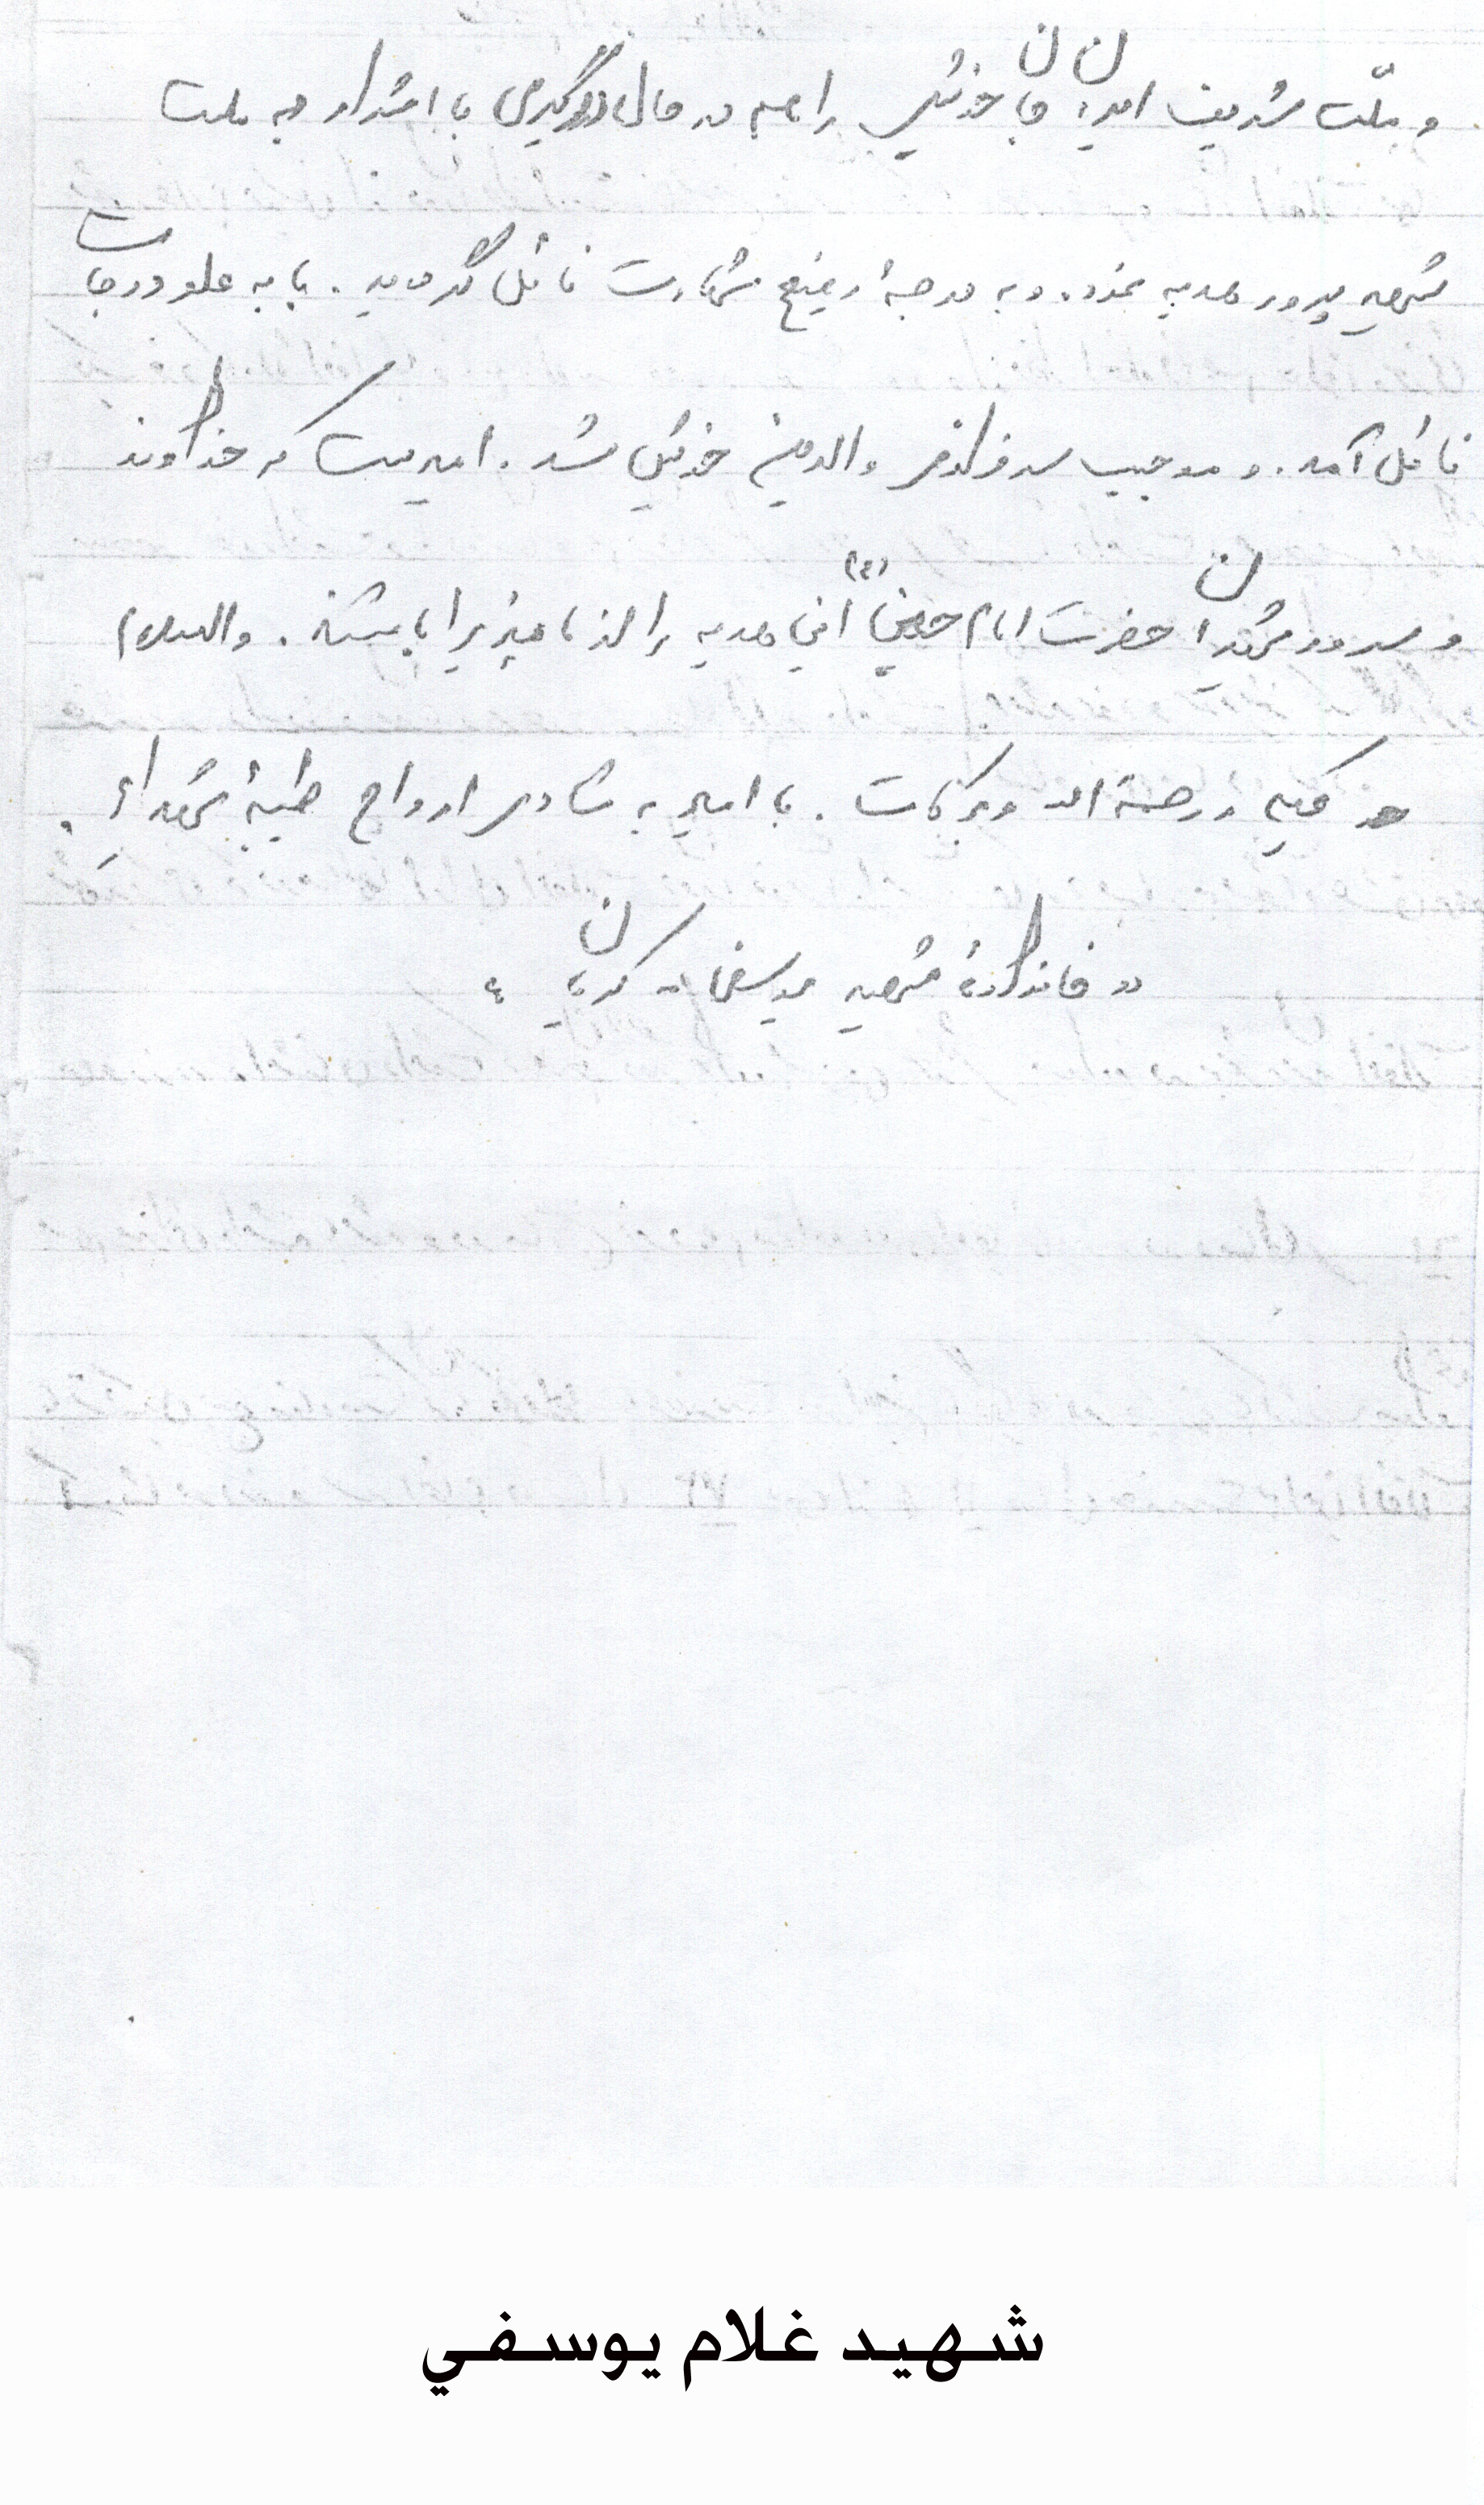 و ملّت شریف ایران جان خویش را هم در حال درگیری با اشرار به ملت
شهید پرور هدیه نمود. و به درجهٔ رفیع شهادت نائل گردید. با به علو درجات
نائل آمد. و موجب سرفرازی والدین خویش شد. امید است که خداوند
و سرور شهیدان حضرت امام حسین (ع) این هدیه را از ما پذیرا باشند. والسلام
علیکم و رحمة الله و برکات. با امید به شادی ارواح طیبهٔ شهداء.
« خانوادهٔ شهید یوسفی
شهید غلام یوسفي